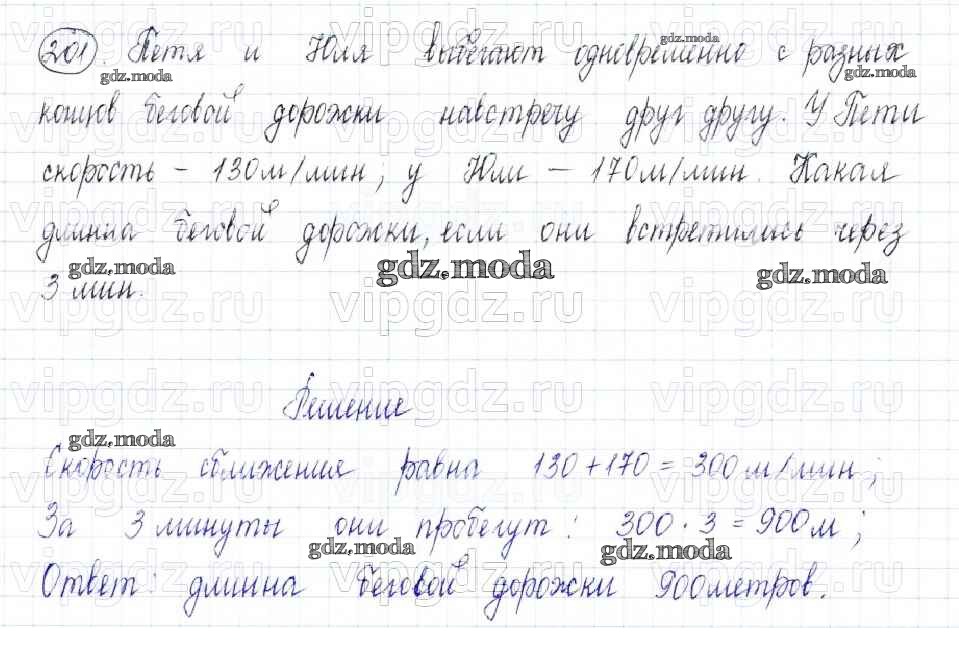 201. Петя и Юля выбегают одновременно с разных
концов беговой дорожки навстречу друг другу. У Пети
скорость – 130м/мин; у Юли – 170м/мин. Какая
длинна беговой дорожки, если они встретились через
3 мин.
Решение
Скорость сближения равна 130+170=300м/мин;
За 3 минуты они пробегут: 300·3=900м;
Ответ: длинна беговой дорожки 900метров.
gdz.moda
gdz.moda
gdz.moda
gdz.moda
gdz.moda
gdz.moda
gdz.moda
gdz.moda
gdz.moda
vipgdz.ru vipgdz.ru vipgdz.ru
vipgdz.ru vipgdz.ru vipgdz.ru
vipgdz.ru vipgdz.ru vipgdz.ru
vipgdz.ru vipgdz.ru vipgdz.ru
vipgdz.ru vipgdz.ru vipgdz.ru
vipgdz.ru vipgdz.ru vipgdz.ru
vipgdz.ru vipgdz.ru vipgdz.ru